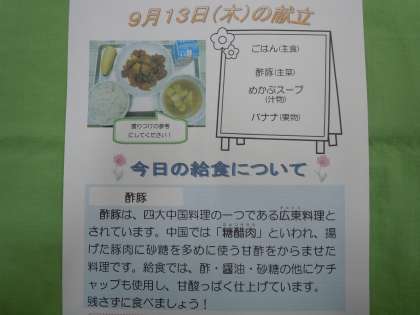 9月13日(木)の献立
ごはん(主食)
酢豚(主菜)
めかぶスープ
(汁物)
バナナ(果物)
盛りつけの参考
にしてください！
今日の給食について
酢豚
酢豚は、四大中国料理の一つである広東料理と
されています。中国では「糖醋肉」といわれ、揚
げた豚肉に砂糖を多めに使う甘酢をからませた
料理です。給食では、酢・醤油・砂糖の他にケチ
ャップも使用し、甘酸っぱく仕上げています。
残さずに食べましょう！